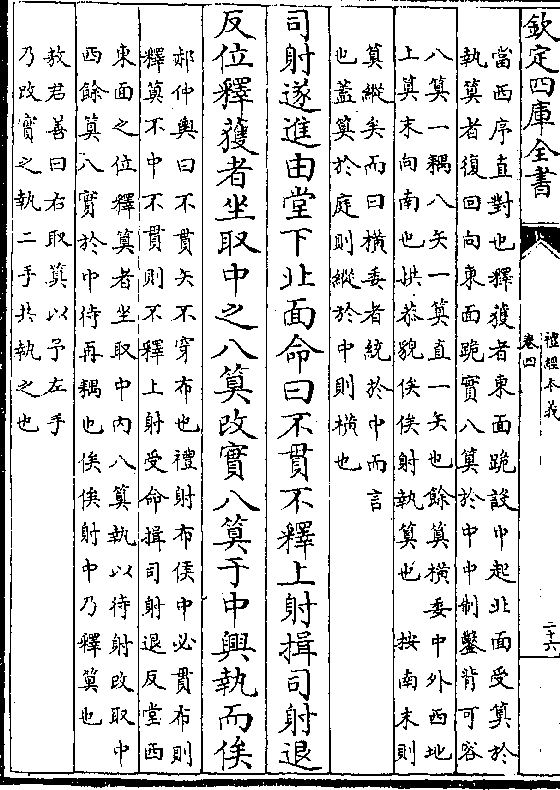 欽定四庫全書
禮經本義
卷四
二十六
當西序直對也釋獲者東面跪設中起北面受算於
執算者復回向東面跪實八算於中中制鑿背可容
八算一耦八矢一算直一矢也餘算橫委中外西地
上算末向南也拱恭貌俟俟射執算也 按南末則
算縱矣而曰橫委者統於中而言
也蓋算於庭則縱於中則橫也
司射遂進由堂下北面命曰不貫不釋上射揖司射退
反位釋獲者坐取中之八算改實八算于中興執而俟
郝仲輿曰不貫矢不穿布也禮射布侯中必貫布則
釋算不中不貫則不釋上射受命揖司射退反堂西
東面之位釋算者坐取中內八算執以待射改取中
西餘算八實於中待再耦也俟俟射中乃釋算也
敖君善曰右取算以予左手
乃改實之執二手共執之也